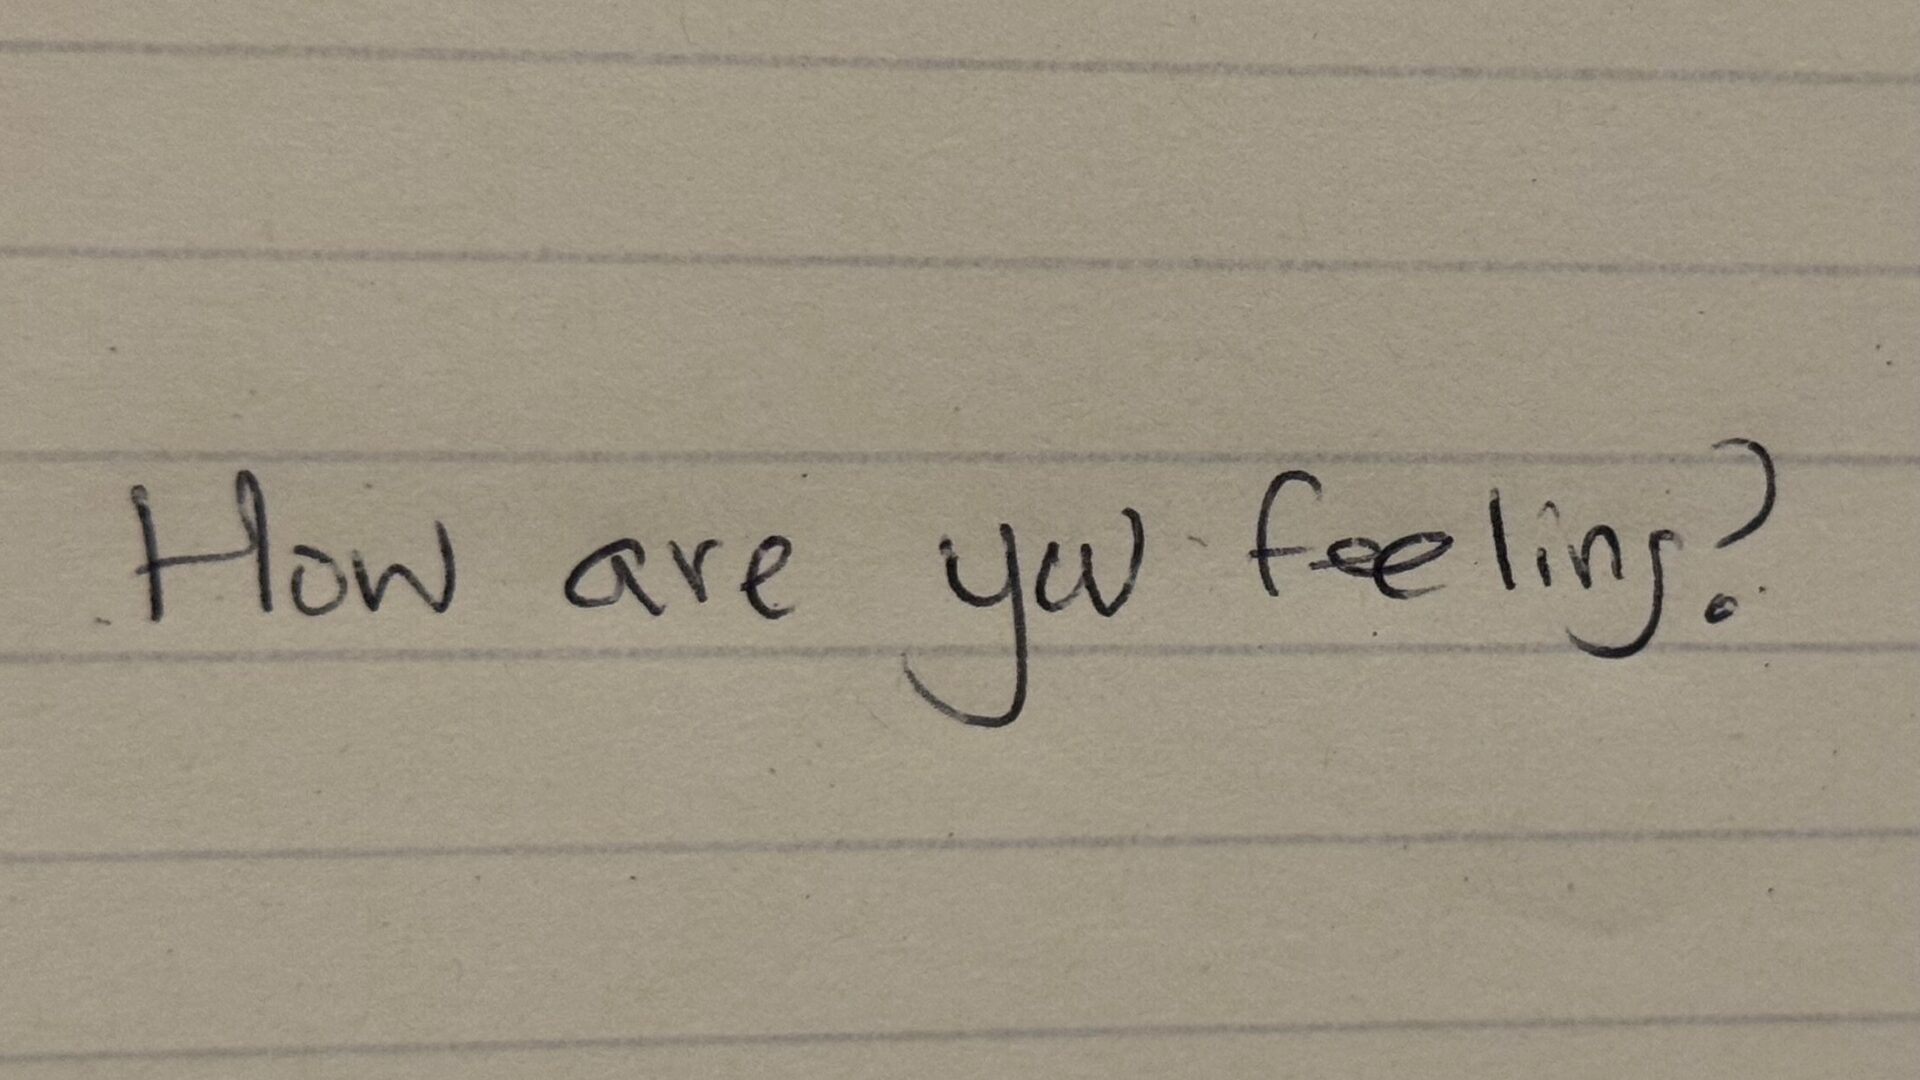 How are you feeling?